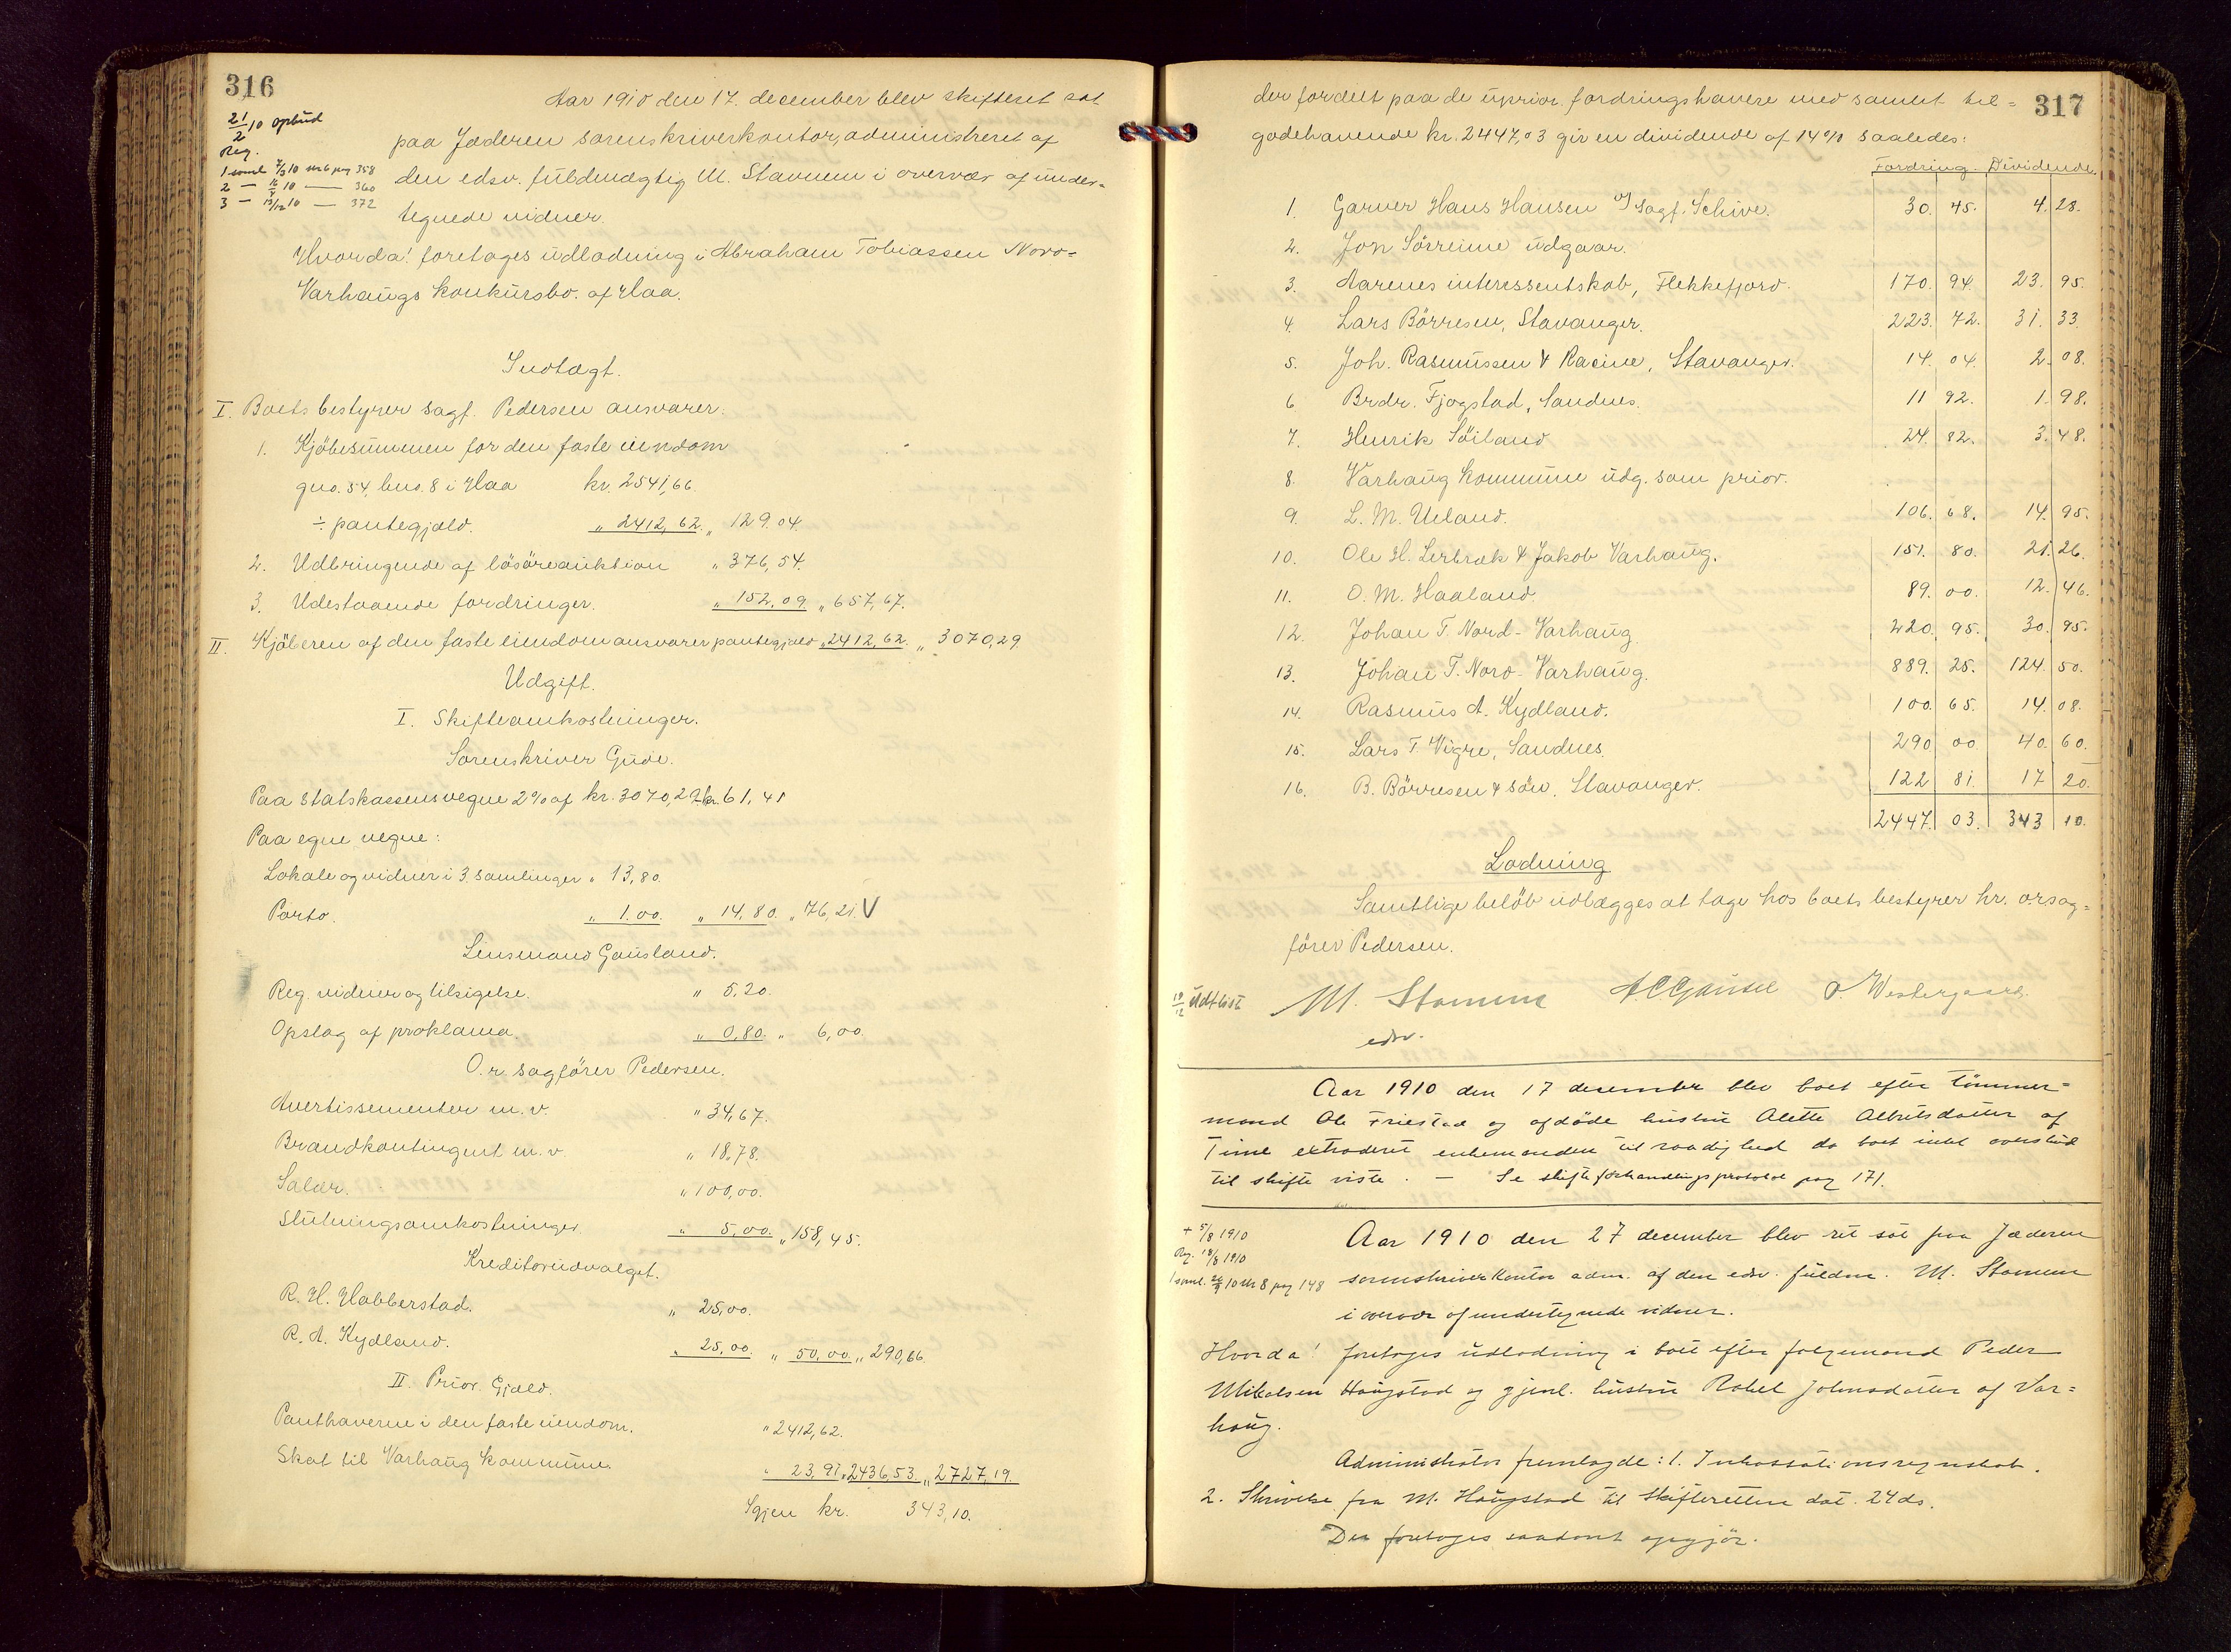 316
21/2 10 opbud
Reg.
1 saml 7/3 10 No 6 pag 358
2 — 10 — 360
3 — 13/12 10 — 372
Aar 1910 den 17. december blev skifteret sat
paa Jæderen sorenskriverkontor, administreret af
den edsv. fuldmægtig M. Stavnem i overvær af under-
tegnede vidner.
Hvorda! foretages udlodning i Abraham Tobiassen Nord-
Varhaugs konkursbo. af Haa.
Indtægt.
I. Boets bestyrer sagf. Pedersen ansvarer:
1. Kjöbesummen for den faste eiendom
gno. 54, bno. 8 i Haa kr. 2541,66.
÷ pantegjæld. " 2412,62. " 129.04.
2. Udbringende af lösöreauktion " 376,54.
3. Udestaaende fordringer. " 152,09 " 657,67.
II. Kjöberen af den faste eiendom ansvarer pantegjæld " 2412,62. " 3070,29.
Udgift.
I. Skifteomkostninger.
Sorenskriver Gude.
Paa statskassens vegne 2 % af kr. 3070,29 kr. 61,41
Paa egne vegne:
Lokale og vidner i 3 samlinger " 13,80.
Porto. " 1.00. " 14,80. " 76,21. V
Lensmand Gausland.
Reg. vidner og tilsigelse. " 5,20.
Opslag af proklama. " 0,80. " 6,00.
O.r. sagförer Pedersen.
Avertissementer m. v. " 34,67.
Brandkontingent m. v. " 18,78.
Salær. " 100,00.
Slutningsomkostninger. " 5,00. " 158,45.
Kreditorudvalget.
R. H. Habberstad. " 25,00.
R. A. Kydland. " 25,00. " 50,00. " 290,66.
II. Prior. Gjæld.
Panthaverne i den faste eiendom. " 2412,62.
Skat til Varhaug kommune. " 23,91. " 2436,53. " 2727,19.
Igjen kr. 343,10.
317
der fordelt paa de uprior. fordringshavere med samlet til-
godehavende kr. 2447,03 gir en dividende af 14 % saaledes:
Fordring. Dividende.
1. Garver Hans Hansen v/ sagf. Schive. 30. 45. 4. 28.
2. Jon Sörreime udgaar.
3. Aarenes interessentskab, Flekkefjord. 170. 94. 23. 95.
4. Lars Börresen, Stavanger. 223. 72. 31. 33.
5. Joh. Rasmussen & Racine, Stavanger. 14. 04. 2. 08.
6. Brdr. Fjogstad, Sandnes. 11 92. 1. 98.
7. Henrik Söiland 24. 82. 3. 48.
8. Varhaug kommune udg. som prior.
9. L. M. Ueland. 106. 68. 14. 95.
10. Ole H. Lerbræk & Jakob Varhaug. 151. 80. 21. 26.
11. O. M. Haaland. 89. 00. 12. 46.
12. Johan T. Nord-Varhaug 220. 95. 30. 95.
13. Johan T. Nord-Varhaug. 889. 25. 124. 50.
14. Rasmus A. Kydland. 100. 65. 14. 08.
15. Lars T. Vigre, Sandnes. 290. 00. 40. 60.
16. B. Börresen & sön, Stavanger. 122 81. 17 20.
2447. 03. 343 10.
Lodning
Samtlige belöb udlægges at tage hos boets bestyrer hr. orsag-
förer Pedersen.
19/12 udt list M. Stavnem A C Gausel P. Westergaard.
edsv.
Aar 1910 den 17 desember blev boet efter Tömmer-
mand Ole Friestad og afdöde hustru Alette Albrtsdatter af
Time extraderet enkemanden til raadighed da boet intet overskud
til skifte viste. — Se skifteforhandlingsprotokol pag 171.
+ 5/8 1910
Reg. 18/8 1910
1 saml. 26/9 10 No 8 pag 148
Aar 1910 den 27 december blev ret sat paa Jæderen
sorenskriverkontor adm. af den edsv. fuldm. M. Stavnem
i overvær af undertegnede vidner.
Hvorda! foretages udlodning i boet efter Peder
Mikalsen Haugstad og gjenl. hustru Rakel Johnsdatter af Var-
haug.
Administrator fremlagde: 1. Inkassationsregnskab.
2. Skrivelse fra M. Haugstad til skifteretten dat. 24 ds.
Der foretoges saadant opgjör.